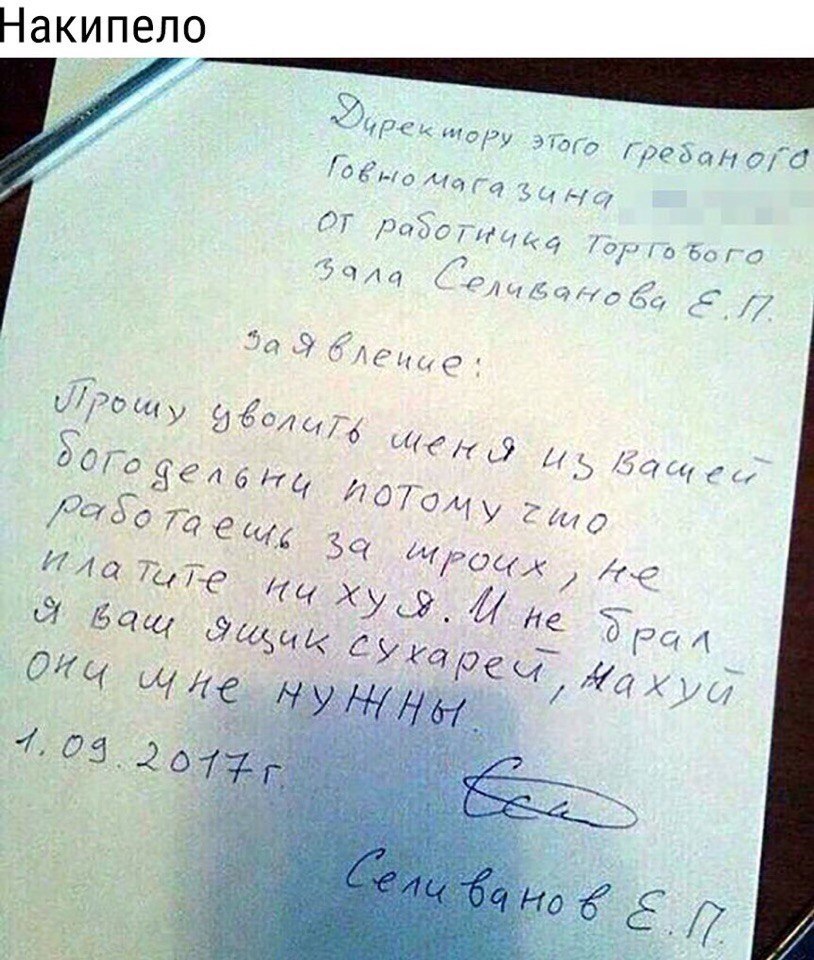 Накипело
Директору этого гребаного
Говномагазина
от работника торгового
зала Селиванова Е.П.
заявление:
Прошу уволить меня из вашей
богодельни потому что
работаешь за троих, не
платите ни хуя. И не брал
я ваш ящик сухарей, нахуй
они мне нужны.
1.09.2017г.
Селиванов Е.П.